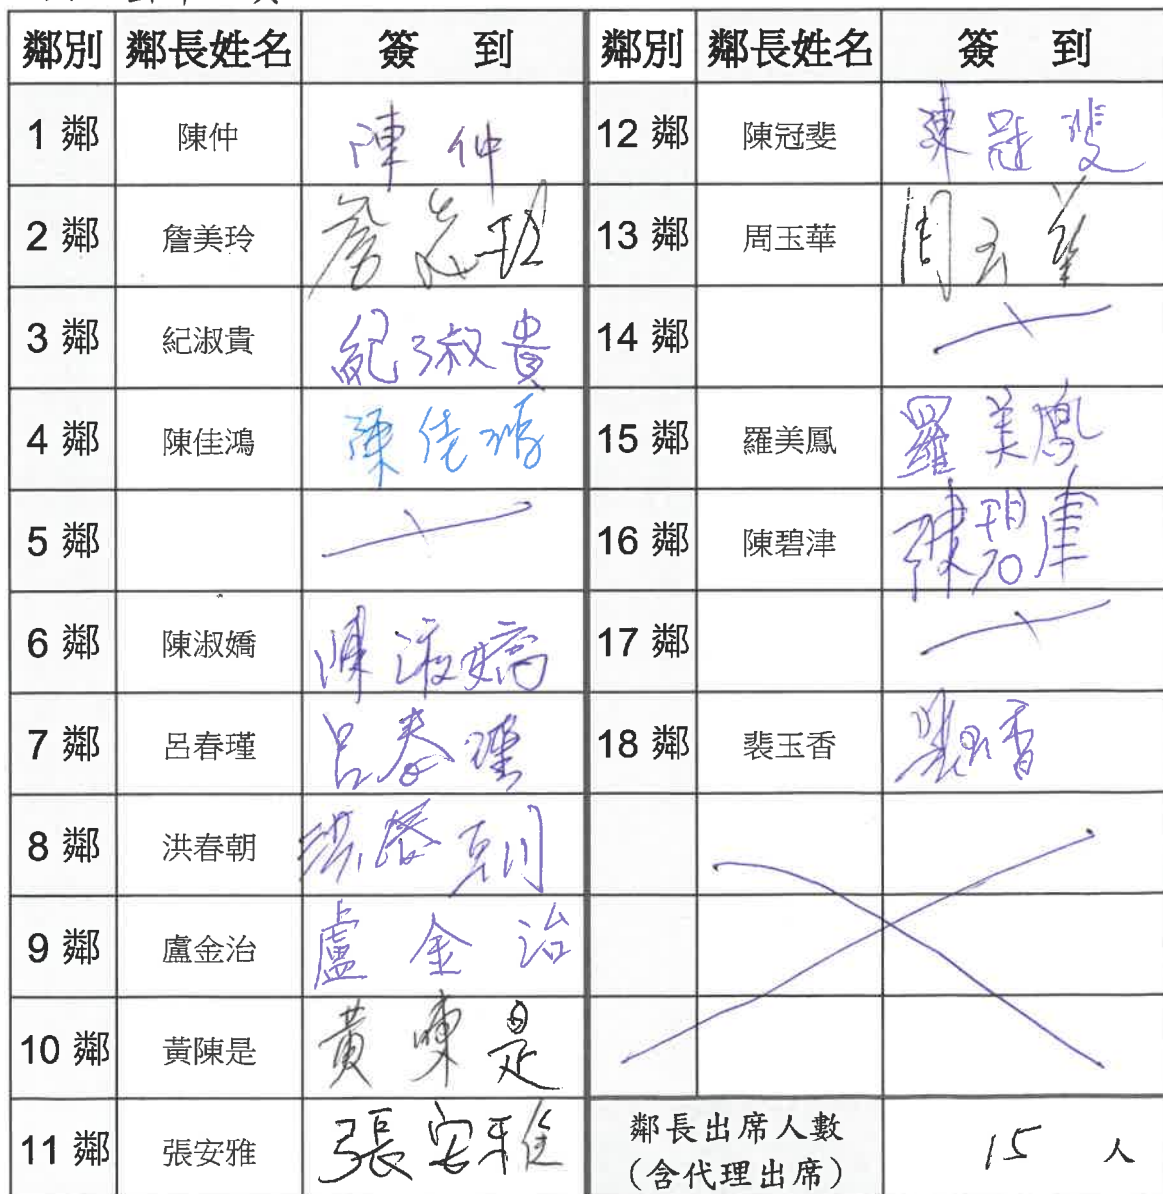 鄰別 鄰長姓名 簽 到 鄰別 鄰長姓名 簽 到
1 鄰 陳仲 陳仲 12 鄰 陳冠斐 陳冠斐
2 鄰 詹美玲 詹美玲 13 鄰 周玉華 周玉華
3 鄰 紀淑貴 紀淑貴 14 鄰
4 鄰 陳佳鴻 陳佳鴻 15 鄰 羅美鳳 羅美鳳
5 鄰 16 鄰 陳碧津 陳碧津
6 鄰 陳淑嬌 陳淑嬌 17 鄰
7 鄰 呂春瑾 呂春瑾 18 鄰 裴玉香 裴玉香
8 鄰 洪春朝 洪春朝
9 鄰 盧金治 盧金治
10 鄰 黃陳是 黃陳是
11 鄰 張安雅 張安雅 鄰長出席人數 15 人
(含代理出席)